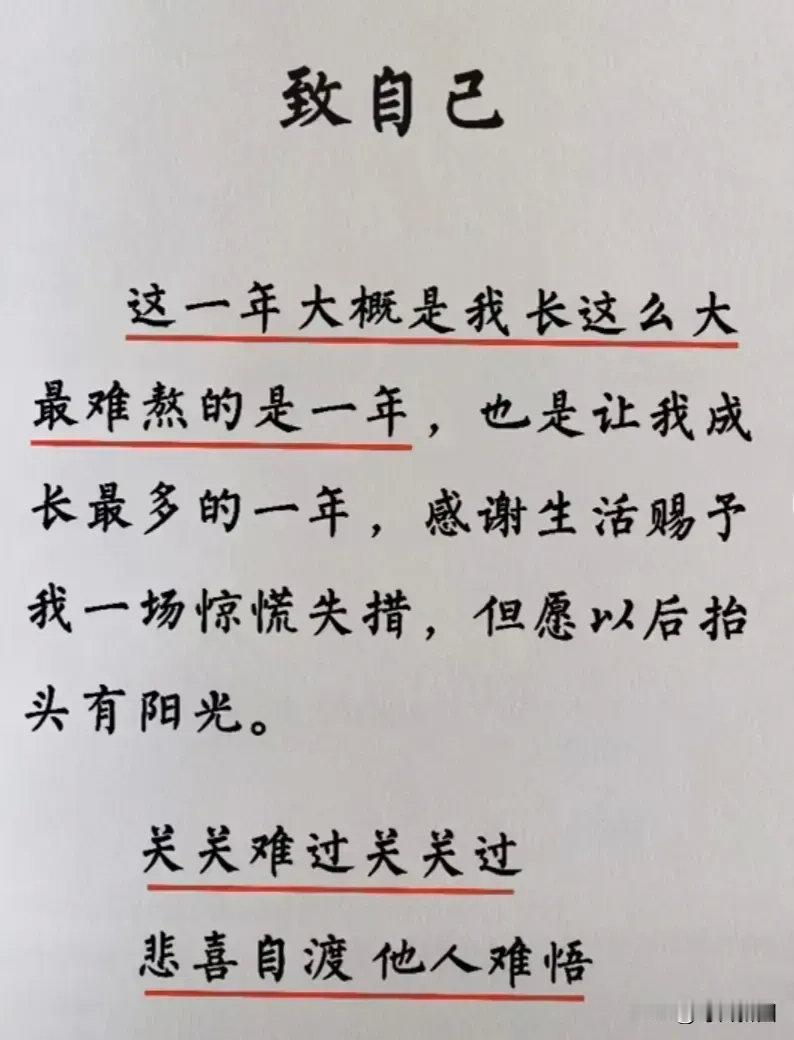 致自己
这一年大概是我长这么大
最难熬的是一年，也是让我成
长最多的一年，感谢生活赐予
我一场惊慌失措，但愿以后抬
头有阳光。
关关难过关关过
悲喜自渡 他人难悟